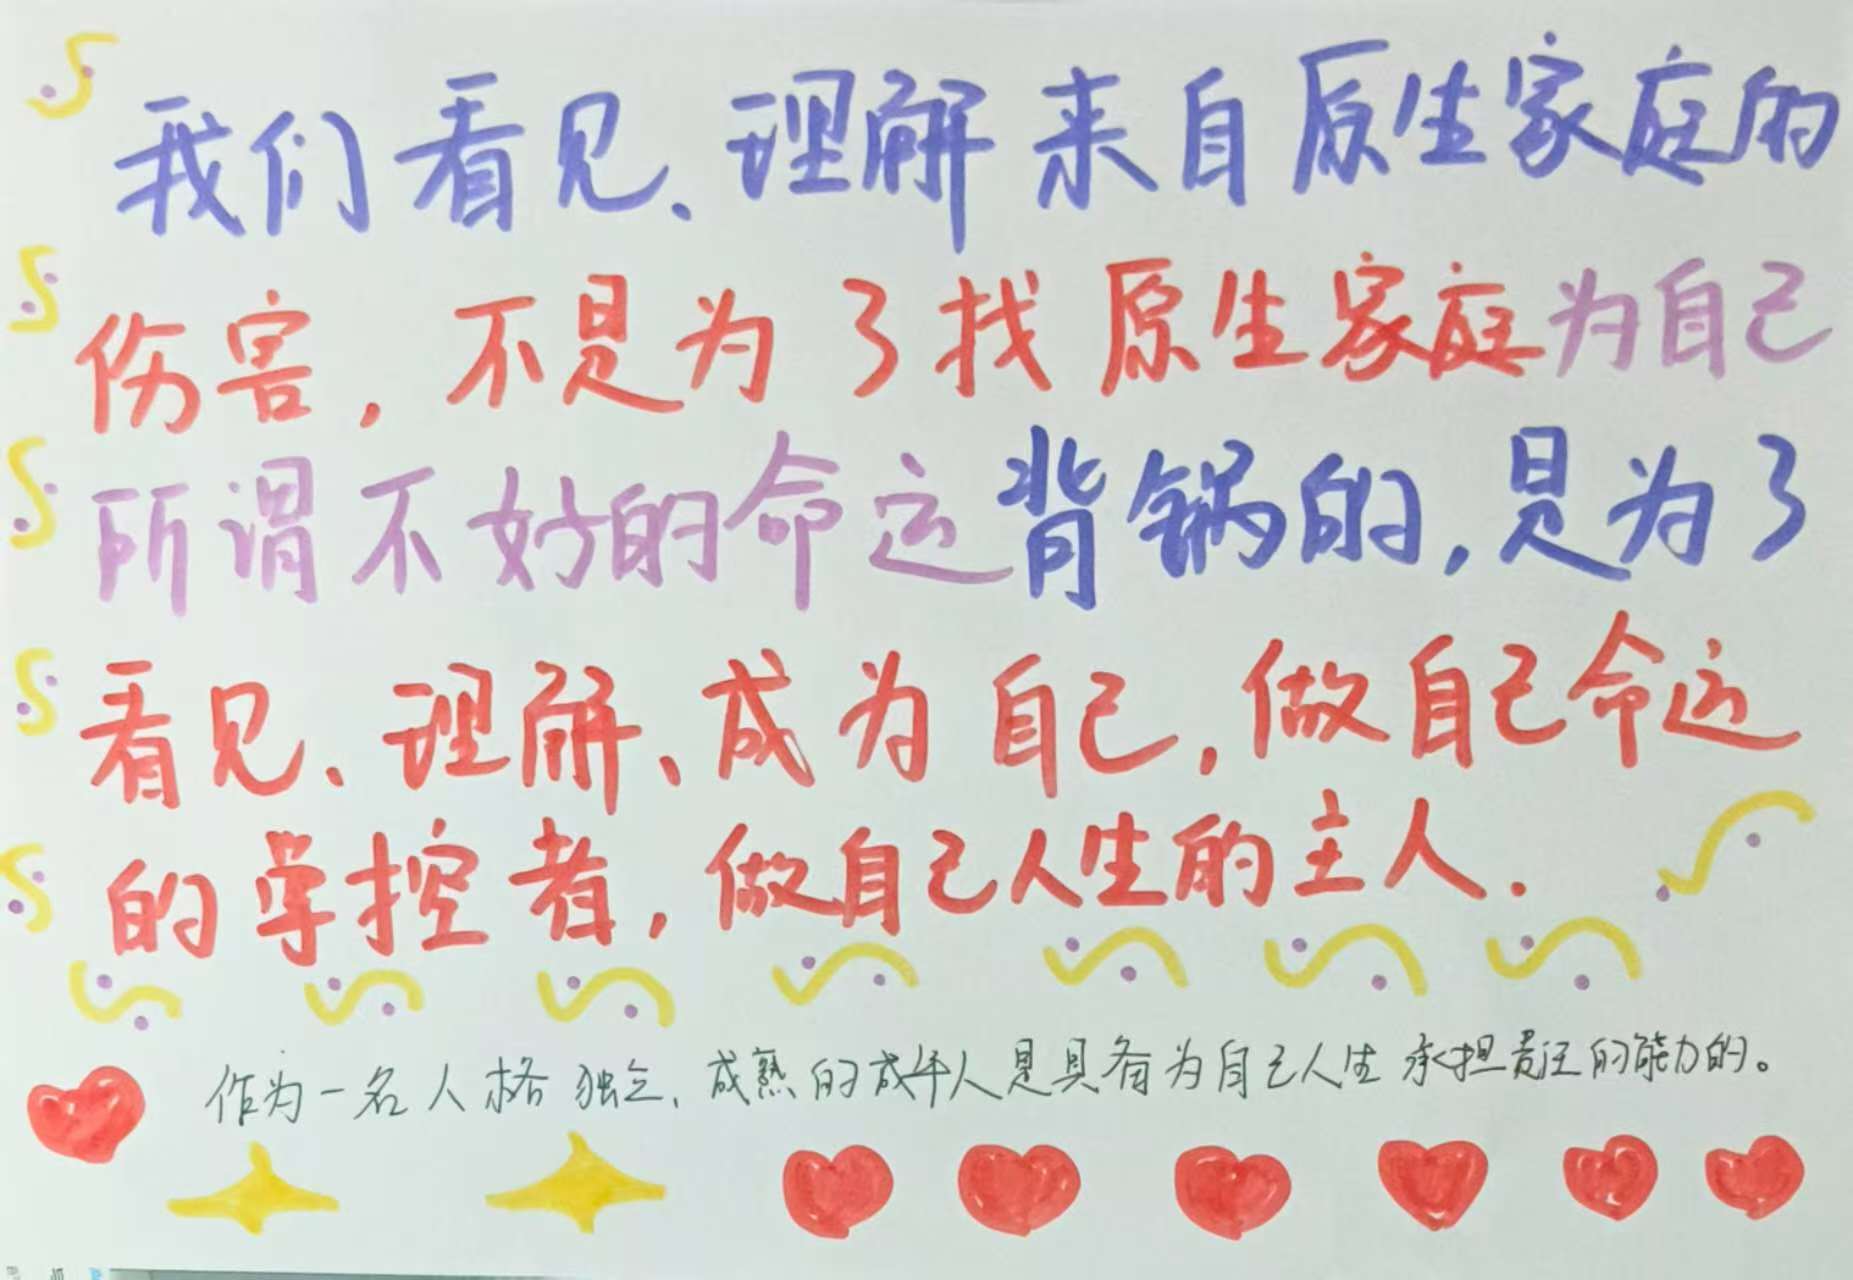 我们看见、理解来自原生家庭的
伤害，不是为了找原生家庭为自己
所谓不好的命运背锅的，是为了
看见、理解、成为自己，做自己命运
的掌控者，做自己人生的主人.
作为一名人格独立、成熟的成年人是具备为自己人生承担责任的能力的。